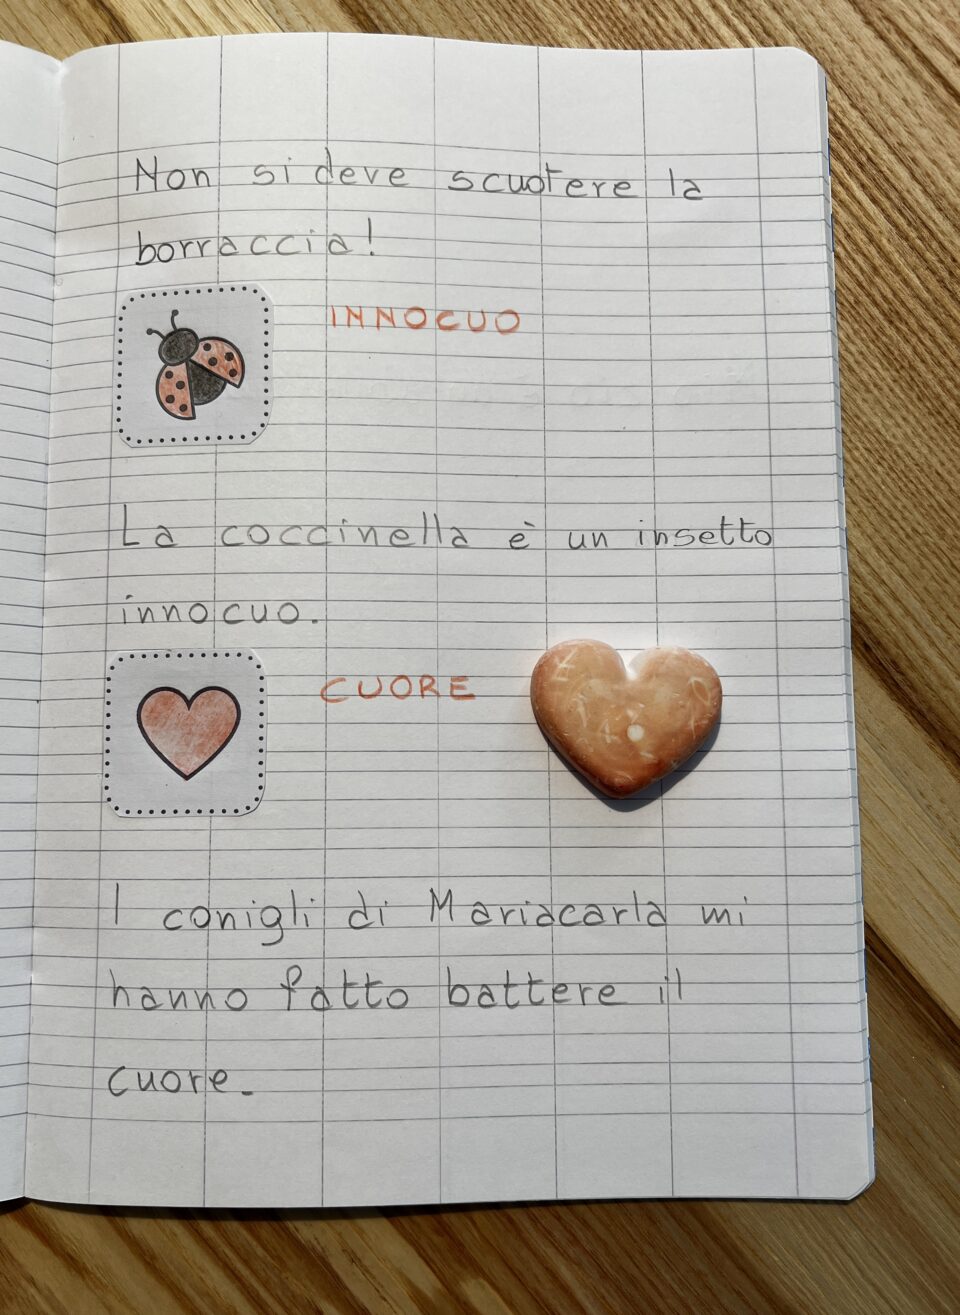 Non si deve scuotere la
borraccia!
INNOCUO
La coccinella è un insetto
innocuo.
CUORE
I conigli di Mariacarla mi
hanno fatto battere il
cuore.